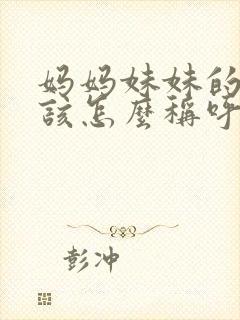 妈妈妹妹的
該怎麼稱呼
彭冲